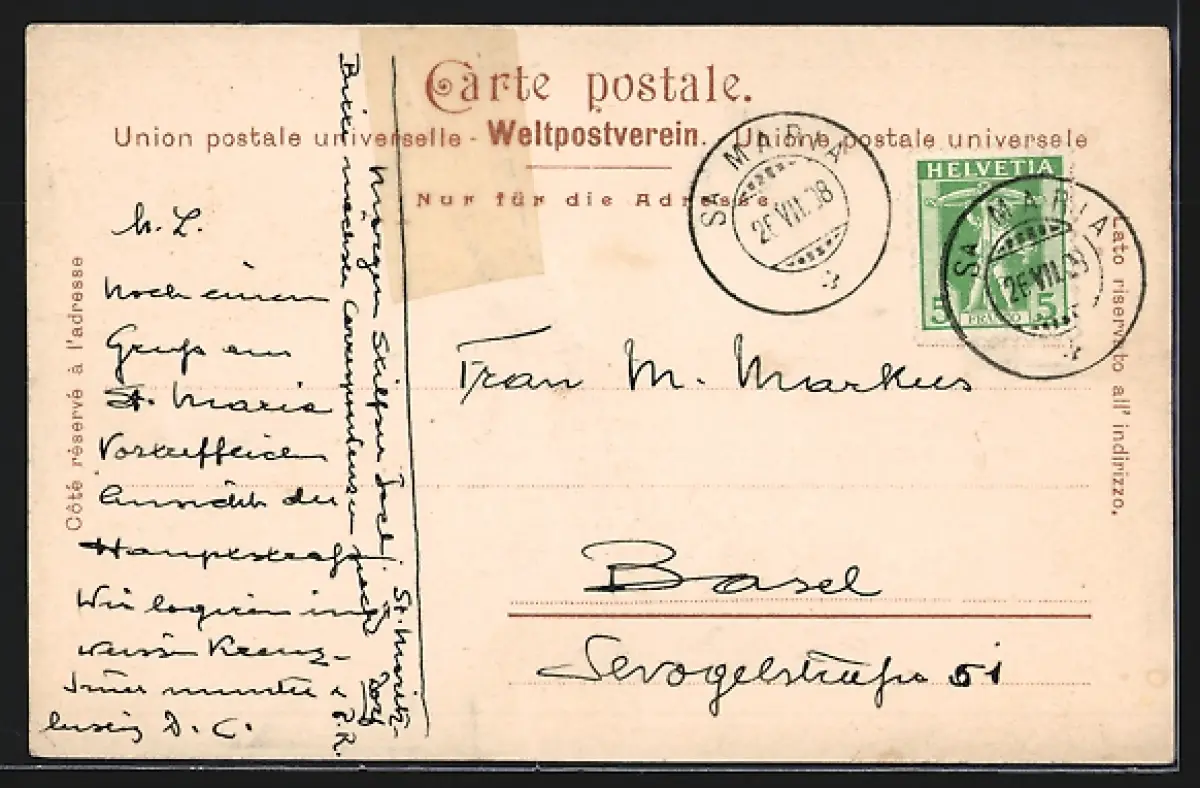 Carte postale.
Union postale universelle - Weltpostverein. Unione postale universale
Nur für die Adresse
Côté réservé à l'adresse
Lato riservato all' indirizzo.
HELVETIA
5 FRANCO 5
STA MARIA
26.VII.08
STA MARIA
26.VII.08
M. L.
Noch einen
Gruss aus
St. Maria
Vortrefflich
Ansicht der
Hauptstrass
Wir logiren im
weissen Kreuz
Immer munter &
D. C.
Morgen Stilfser Joch.
Bitte nächste Correspondenzen nach
St. Moritz-
Dorf
P. R.
Frau M. Markus
Basel
Sevogelstrasse 51